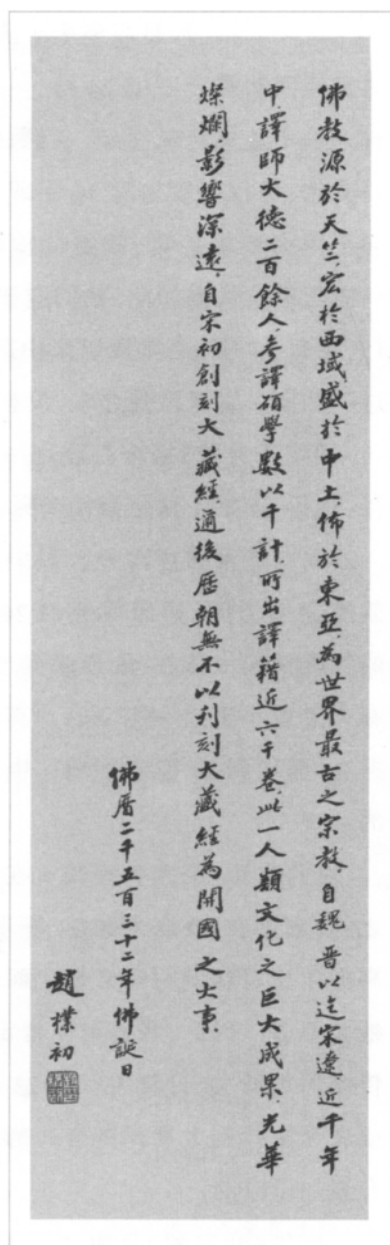 佛教源於天竺,宏於西域,盛於中土,佈於東亞,為世界最古之宗教,自魏晉以迄宋遼,近千年
中,譯師大德二百餘人,參譯碩學數以千計,所出譯籍近六千卷,此一人類文化之巨大成果,光華
燦爛,影響深遠,自宋初創刻大藏經,邇後歷朝無不以刊刻大藏經為開國之大事,
佛曆二千五百三十二年佛誕日
趙樸初